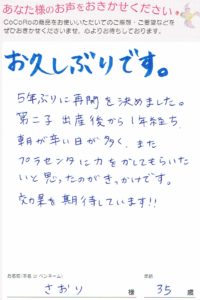 あなた様のお声をおきかせください。
CoCoRoの商品をお使いいただいてのご感想・ご要望などを
ぜひおきかせくださいませ。心よりお待ちしております。
お久しぶりです。
5年ぶりに再開を決めました。
第二子出産後から1年経ち、
朝が辛い日が多く、また
プラセンタに力をかしてもらいた
いと思ったのがきっかけです。
効果を期待しています!!
お名前(予名 or ペンネーム) 年齢
さおり 様 35 歳